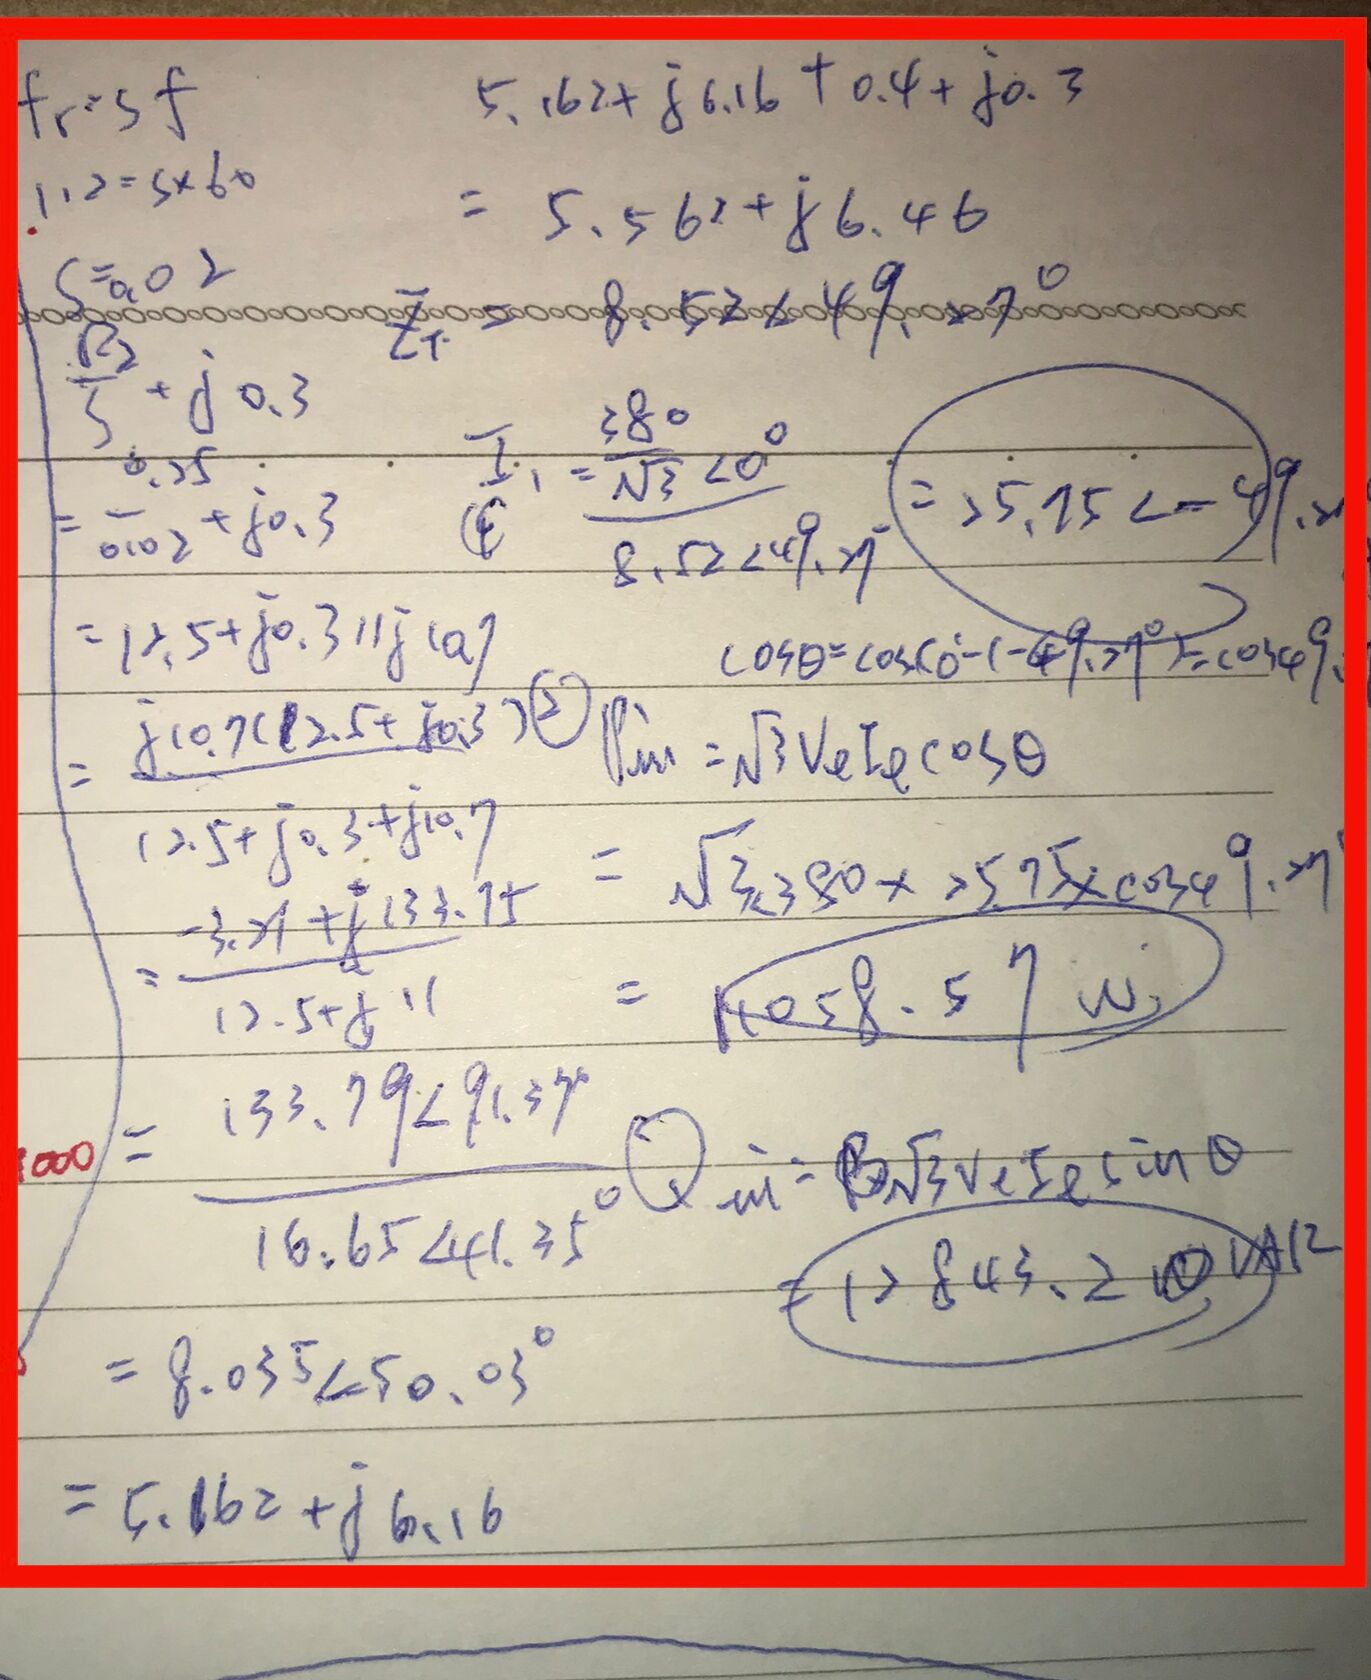 fr=sf
1.2=s×60
s=0.02
R2/s + j0.3
= 0.25/0.02 + j0.3
= 12.5+j0.3//j10.7
= j10.7(12.5+j0.3)
12.5+j0.3+j10.7
= -3.21+j133.75
12.5+j11
= 133.79∠91.37°
16.65∠41.35°
= 8.035∠50.03°
= 5.162+j6.16
5.162+j6.16+0.4+j0.3
= 5.562+j6.46
Z̄T = 8.52∠49.27°
Ī1 = 380/√3∠0°
8.52∠49.27
= 25.75∠-49.27
cosθ=cos(0°-(-49.27°))=cos49.
② Pin = √3VeIecosθ
= √3×380×25.75×cos49.27°
= 11058.57 W
Qin = √3VeIesinθ
= 12843.2 VAR
1000